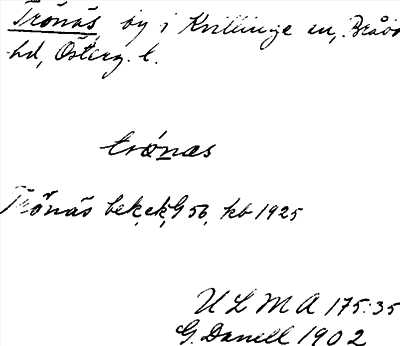 Trönäs by i Kvillinge sn, Bråbo
hd, Österg. l.
trónas
Trönäs bek, ek, G 56, kb 1925
ULMA 175:35
G. Danell 1902